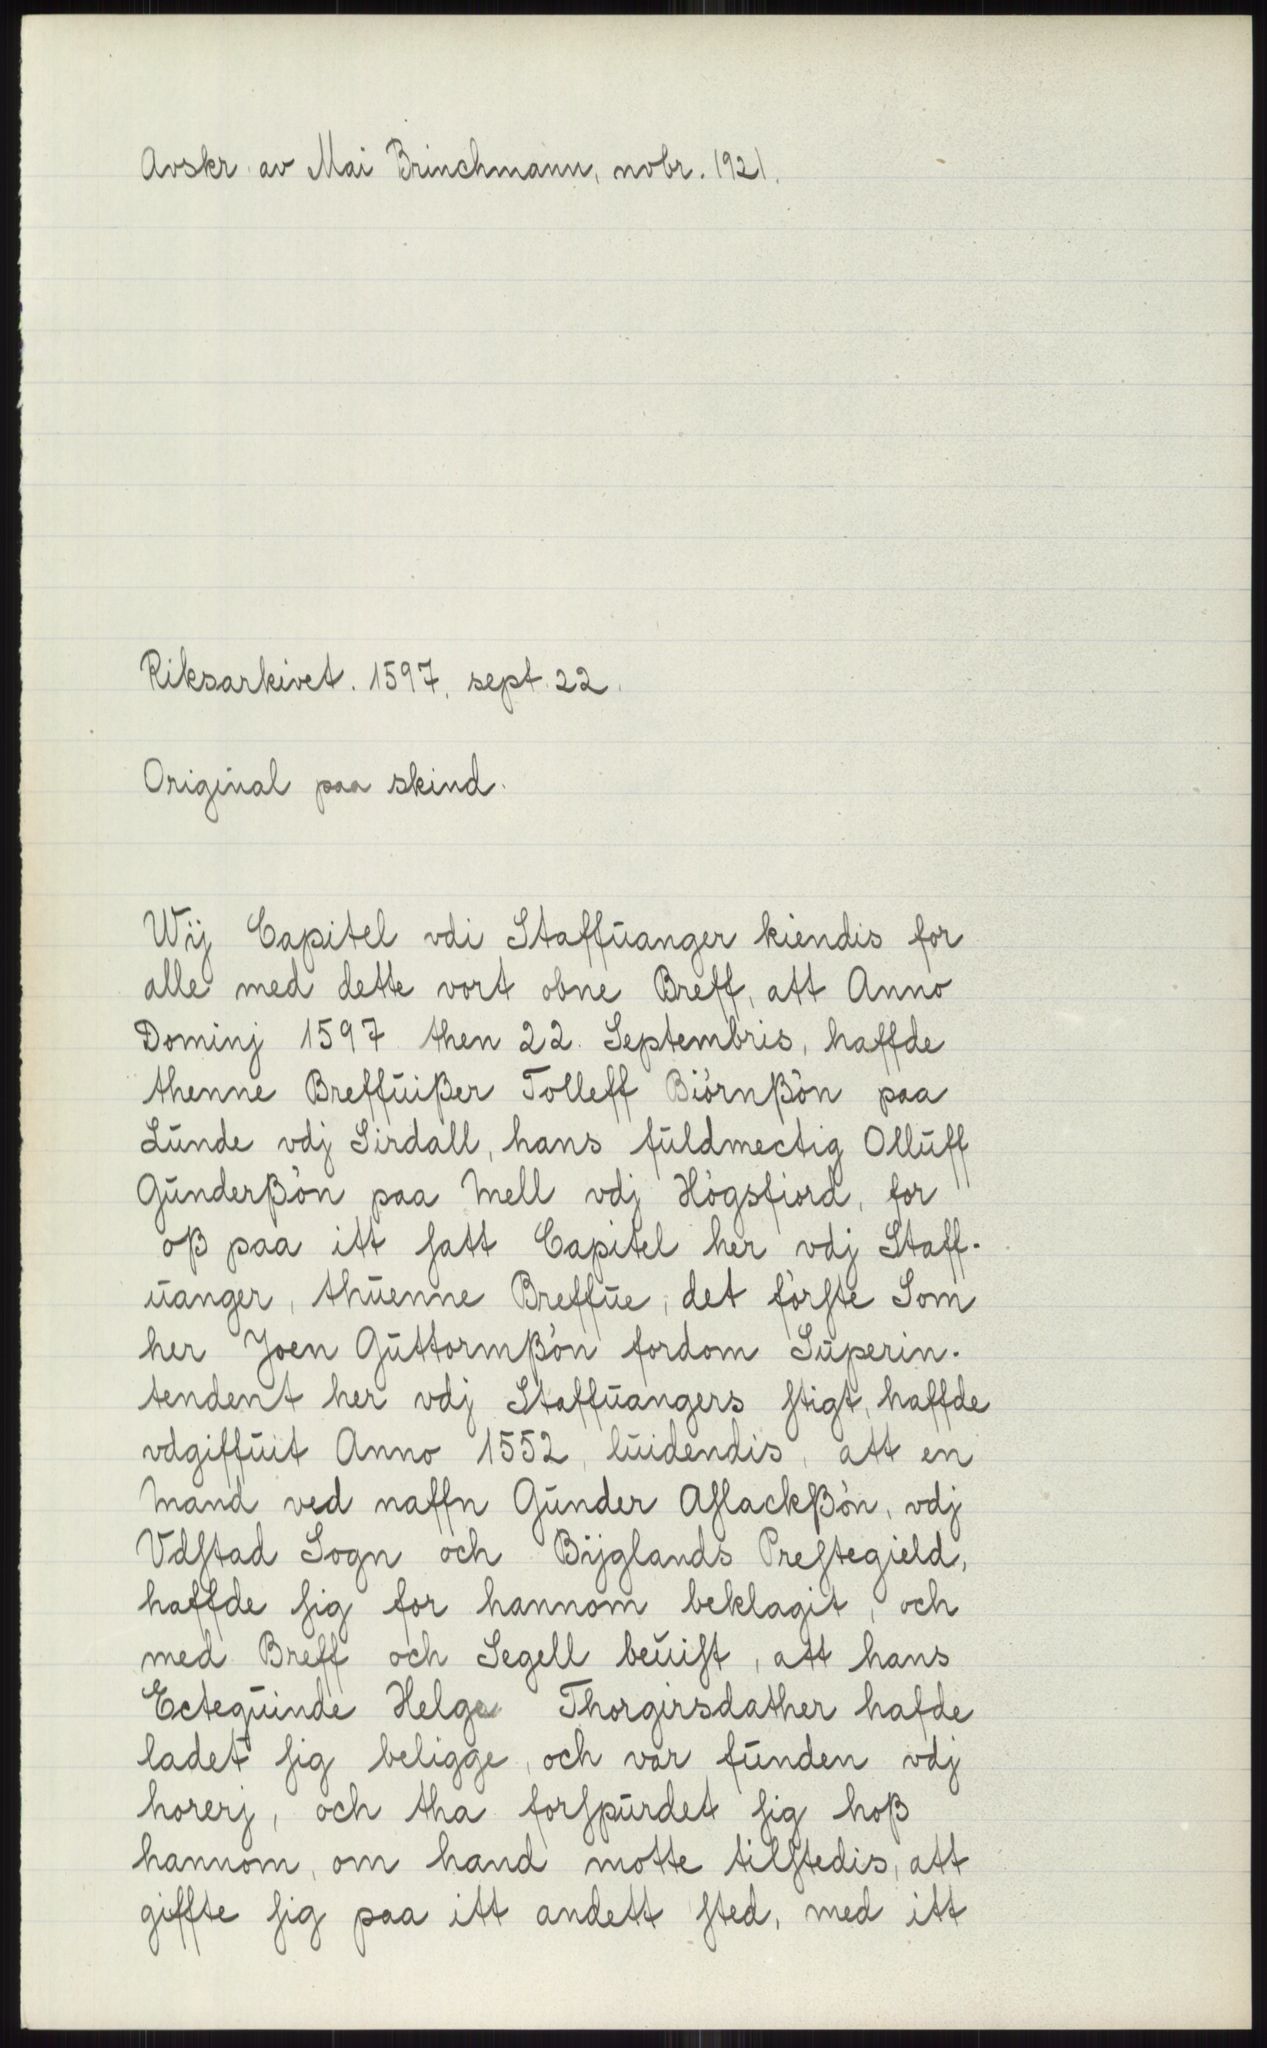 Avskr. av Mai Brinchmann, nvbr. 1921.
Riksarkivet. 1597. sept. 22.
Original paa skind.
Wij Capitel vdi Staffuanger kiendis for
alle med dette vort obne Breff, att Anno
Dominj 1597 then 22. Septembris, haffde
thenne Breffuißer Tolleff Biörnßön paa
Lunde vdj Sirdall, hans fuldmectig Olluff
Gunderßön paa Mell vdj Högsfiord, for
oß paa itt satt Capitel her vdj Staff-
uanger, thuenne Breffue, det förste Som
her Joen Guttormßön fordom Superin-
tendent her vdj Staffuangers stigt, haffde
vdgiffuit Anno 1552, luidendis, att en
Mand ved naffn Gunder Aslackßön, vdj
Vdstad Sogn och Bijglands Prestegield,
haffde sig for hannom beklagit, och
med Breff och Segell beuist, att hans
Ectequinde Helge Thorgirsdather hafde
ladet sig beligge, och var funden vdj
horerj, och tha forspurdet sig hoß
hannom, om hand motte tilstedis, att
giffte sig paa itt andett sted, med itt